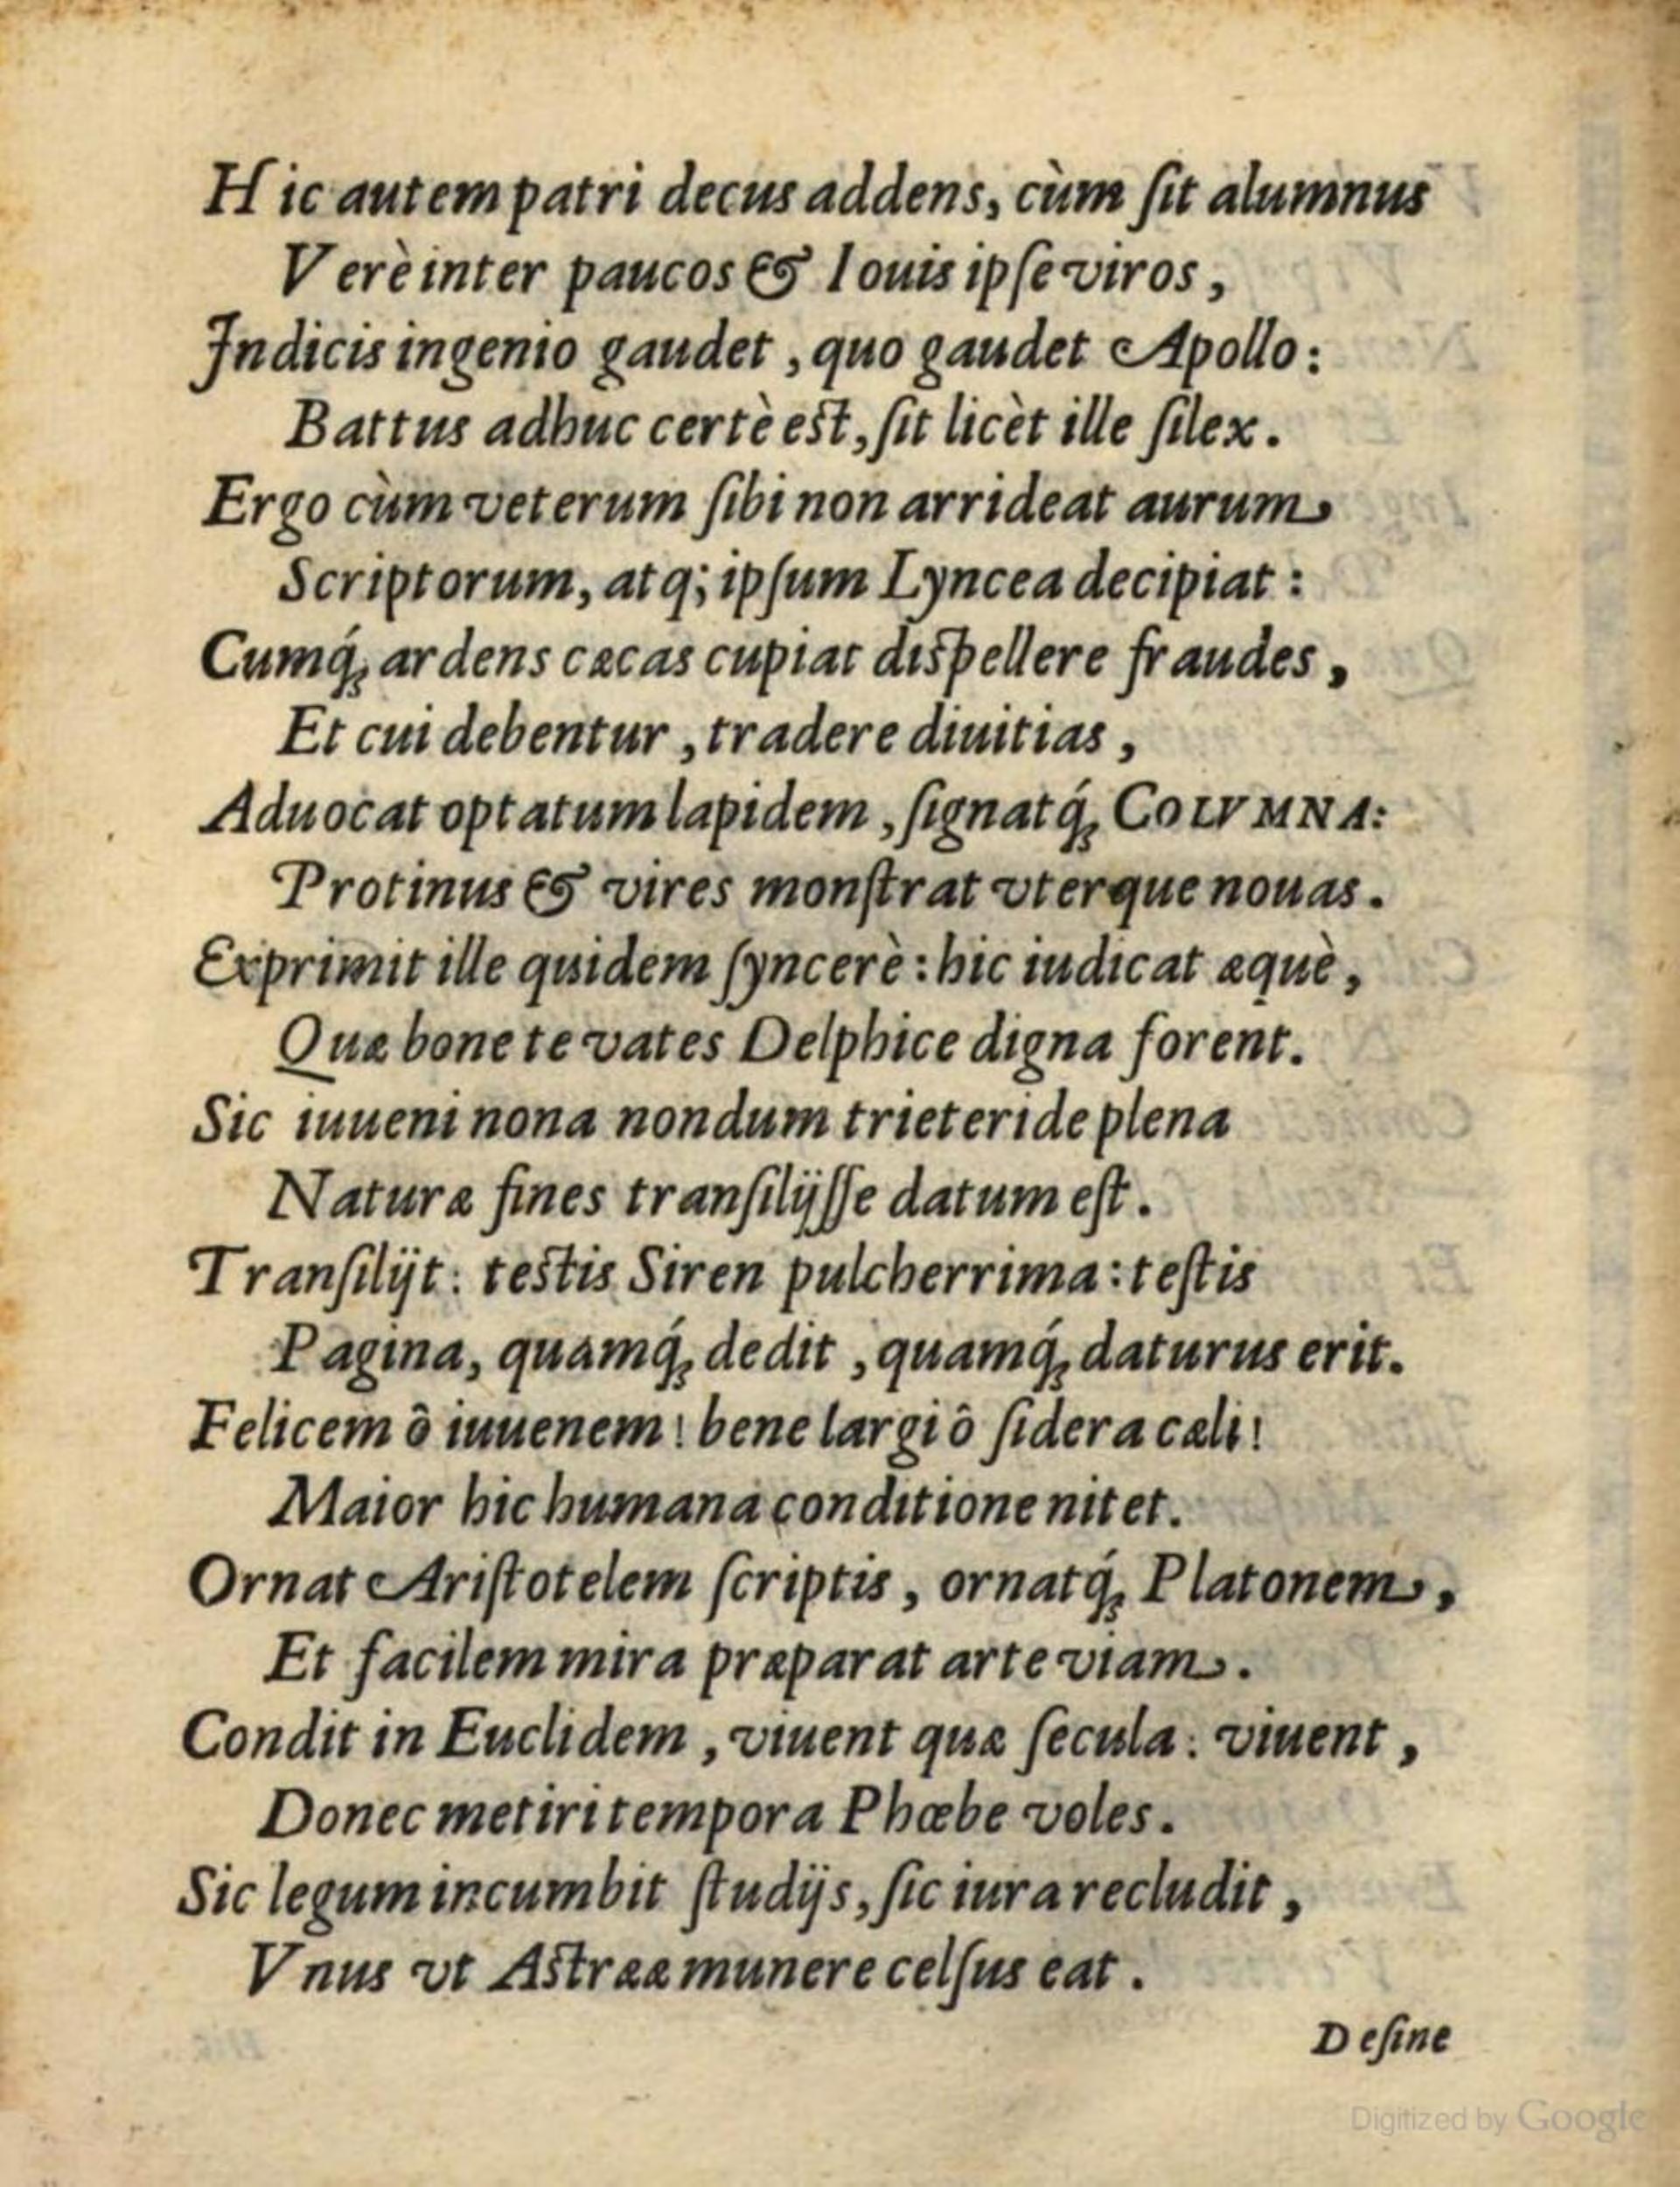 Hic autem patri decus addens, cùm ſit alumnus
Verè inter paucos & Iouis ipſe viros,
Indicis ingenio gaudet, quo gaudet Apollo:
Battus adhuc certè eſt, ſit licèt ille ſilex.
Ergo cùm veterum ſibi non arrideat aurum
Scriptorum, atq; ipſum Lyncea decipiat:
Cumq́; ardens cæcas cupiat diſpellere fraudes,
Et cui debentur, tradere diuitias,
Aduocat optatum lapidem, ſignatq́; COLVMNA:
Protinus & vires monſtrat vterque nouas.
Exprimit ille quidem ſyncerè: hic iudicat æquè,
Quæ bone te vates Delphice digna forent.
Sic iuueni nona nondum trieteride plena
Naturæ fines tranſilijſſe datum eſt.
Tranſilijt: teſtis Siren pulcherrima: teſtis
Pagina, quamq́; dedit, quamq́; daturus erit.
Felicem ô iuuenem! bene largi ô ſidera cæli!
Maior hic humana conditione nitet.
Ornat Ariſtotelem ſcriptis, ornatq́; Platonem,
Et facilem mira præparat arte viam.
Condit in Euclidem, viuent quæ ſecula: viuent,
Donec metiri tempora Phœbe voles.
Sic legum incumbit ſtudijs, ſic iura recludit,
Vnus vt Aſtrææ munere celſus eat.
Deſine
Digitized by Google